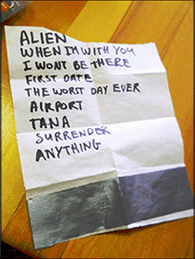 ALIEN
WHEN IM WITH YOU
I WONT BE THERE
FIRST DATE
THE WORST DAY EVER
AIRPORT
TANA
SURRENDER
ANYTHING